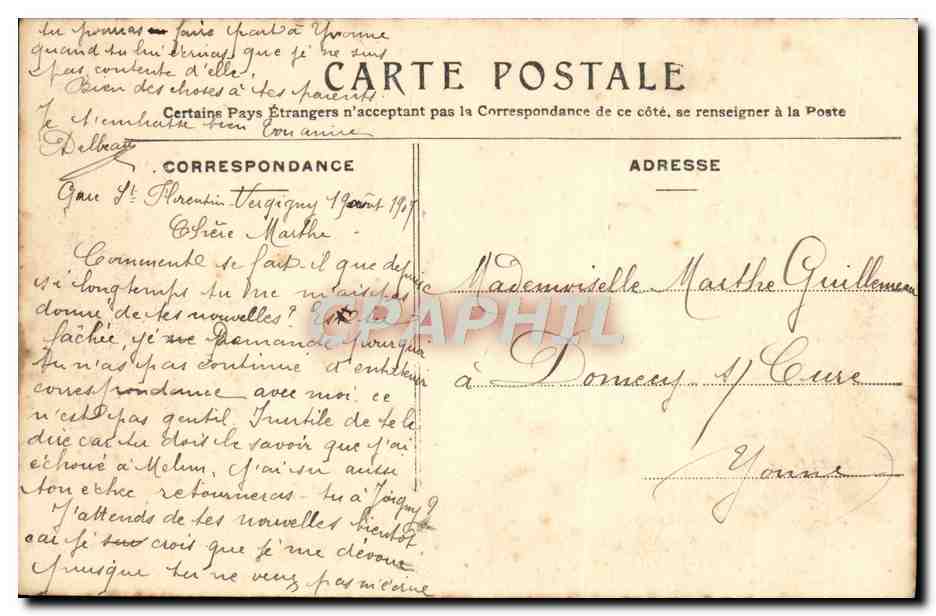 tu pourras faire part à Yvonne
quand tu lui écriras, que je ne suis
pas contente d'elle.
Bien des choses à tes parents.
Je t'embrasse bien ton amie
Delbeau
CARTE POSTALE
Certains Pays Étrangers n'acceptent pas la Correspondance de ce côté, se renseigner à la Poste
CORRESPONDANCE
Gare St Florentin Vergigny 19 août 1907
Chère Marthe
Comment se fait-il que depuis
si longtemps tu ne m'aies pas
donné de tes nouvelles? Es tu
fâchée, je me demande pourquoi
tu n'as pas continué d'entretenir
correspondance avec moi. ce
n'est pas gentil. Inutile de te le
dire car tu dois le savoir que j'ai
échoué à Melun, j'ai su aussi
ton echec retourneras-tu à Joigny?
J'attends de tes nouvelles bientôt
car je crois que je me dévoue
puisque tu ne veux pas m'écrire
ADRESSE
Mademoiselle Marthe Guillemeau
à Domecy s/ Cure
(Yonne)
CPAPHIL